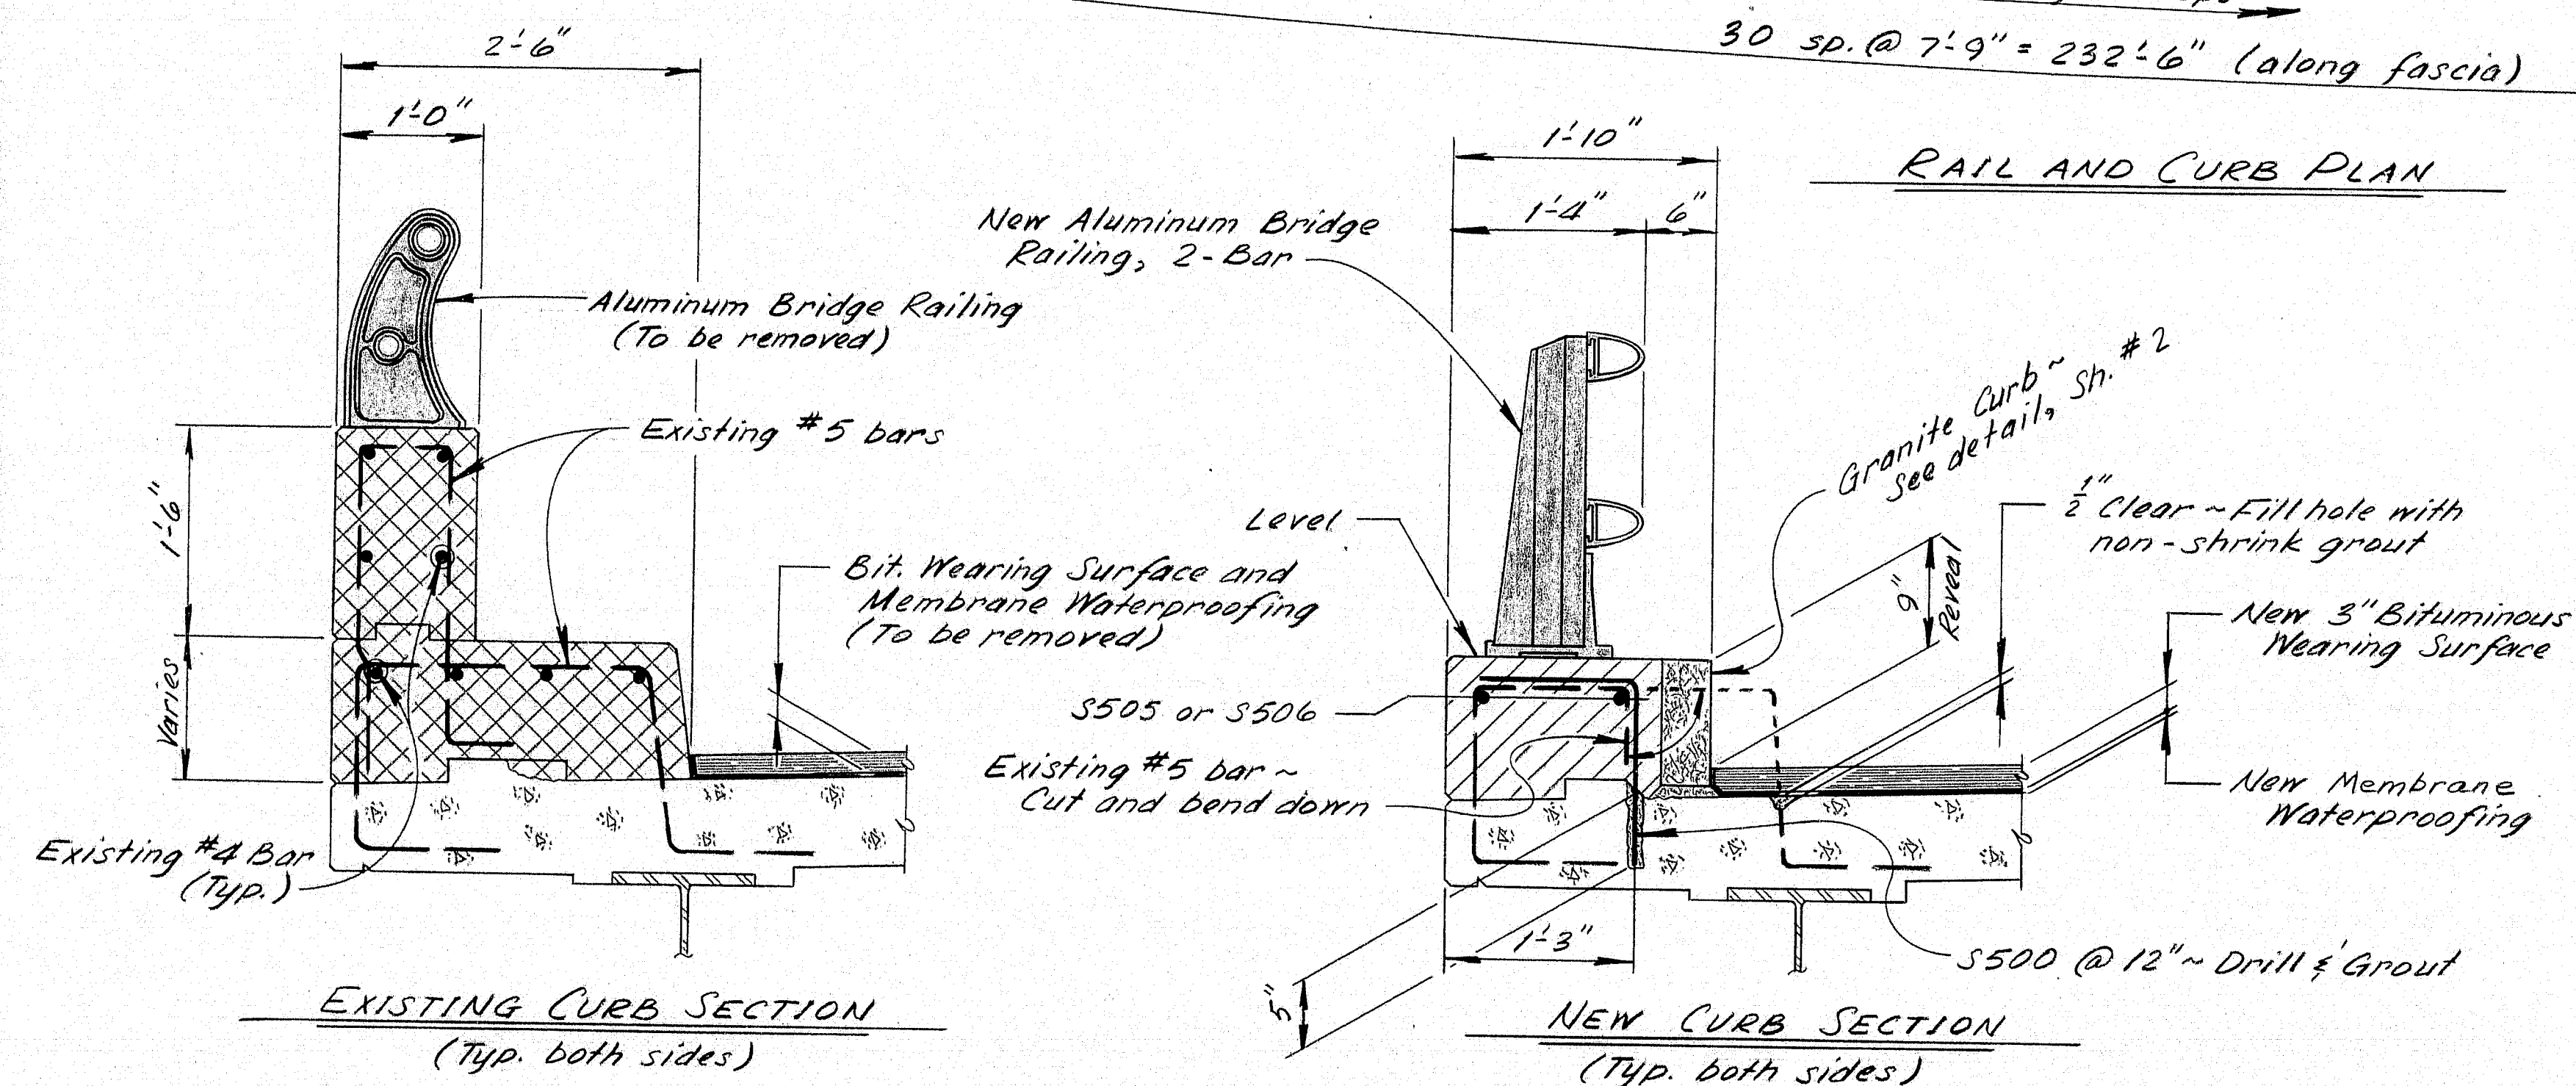 30 sp. @ 7'-9" = 232'-6" (along fascia)
RAIL AND CURB PLAN
2'-6"
1'-0"
Aluminum Bridge Railing
(To be removed)
Existing #5 bars
1'-6"
Varies
Bit. Wearing Surface and
Membrane Waterproofing
(To be removed)
Existing #4 Bar
(Typ.)
EXISTING CURB SECTION
(Typ. both sides)
1'-10"
1'-4"
6"
New Aluminum Bridge
Railing, 2-Bar
Granite Curb ~
see detail, Sh. #2
Level
9"
Reveal
1/2" Clear ~ Fill hole with
non-shrink grout
New 3" Bituminous
Wearing Surface
S505 or S506
Existing #5 bar ~
Cut and bend down
New Membrane
Waterproofing
1'-3"
5"
S500 @ 12" ~ Drill & Grout
NEW CURB SECTION
(Typ. both sides)